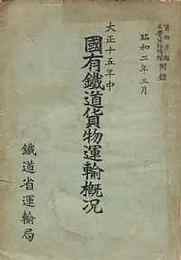 附錄
昭和二年三月
大正十五年中
國有鐵道貨物運輸概況
鐵道省運輸局